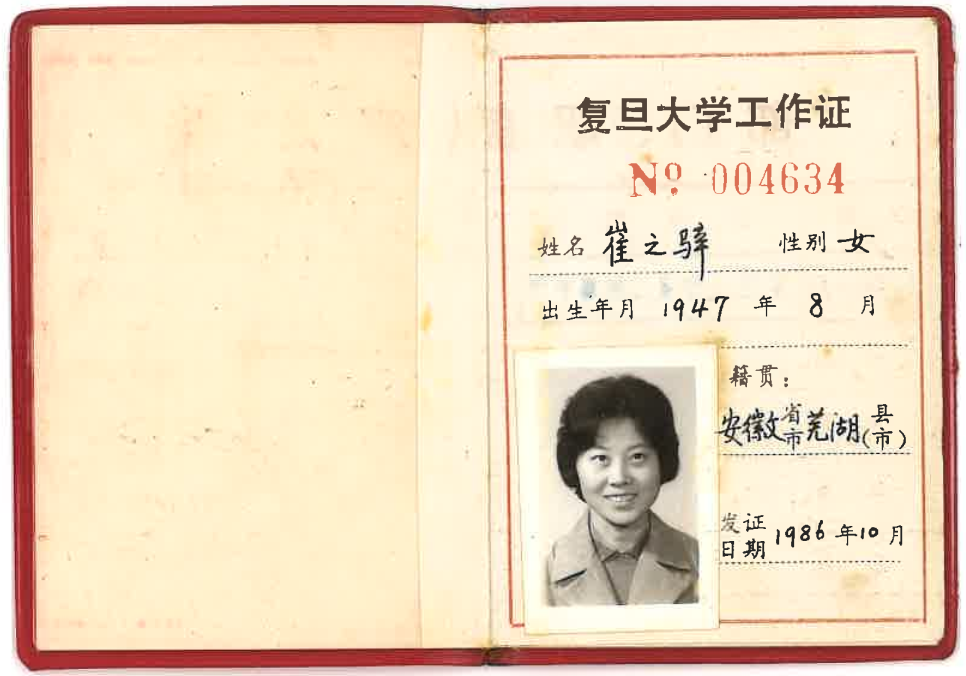 复旦大学工作证
Nº 004634
姓名 崔之骍 性别 女
出生年月 1947 年 8 月
籍贯：
安徽省市芜湖县(市)
发证日期 1986 年 10 月